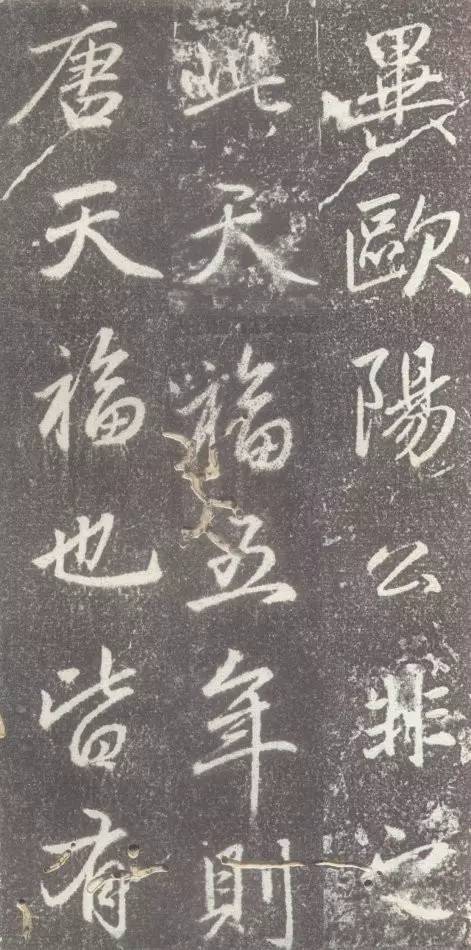 畢歐陽公非之
此天福五年則
唐天福也皆有